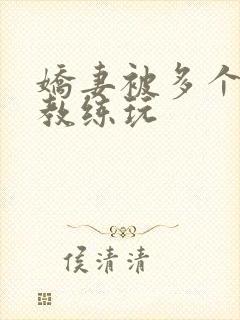 嬌妻被多个
教练玩
侯清清